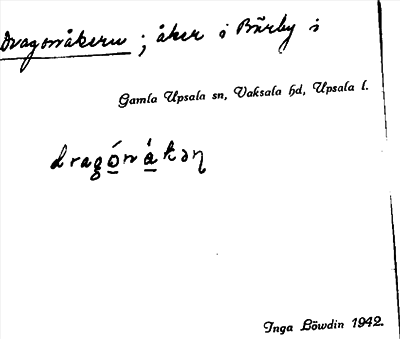 Dragonåkern; åker i Bärby i
Gamla Upsala sn, Vaksala hd, Upsala l.
dragónákəɳ
Inga Löwdin 1942.